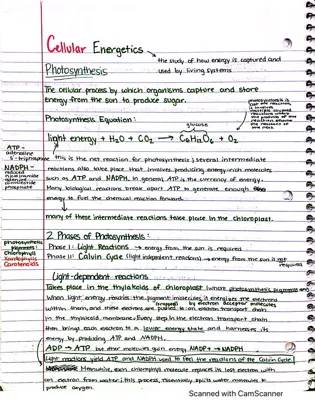 Cellular Energetics
the study of how energy is captured and
used by living systems
Photosynthesis
The cellular process by which organisms capture and store
energy from the sun to produce sugar.
Photosynthesis Equation:
glucose
light energy + H₂O + CO₂ → C₆H₁₂O₆ + O₂
ATP -
adenosine
5-triphosphate
this is the net reaction for photosynthesis; several intermediate
NADPH -
reactions also take place that involves producing energy-rich molecules
such as ATP and NADPH. In general, ATP is the currency of energy.
Many biological reactions break apart ATP to generate enough
energy to fuel the chemical reaction forward.
many of these intermediate reactions take place in the chloroplast.
photosynthetic
pigments:
Chlorophylls
Xanthophylls
Carotenoids
2 Phases of Photosynthesis:
Phase I: Light Reactions → energy from the sun is required
Phase II: Calvin Cycle (light independent reactions) → energy from the sun is not
required
Light-dependent reactions
Takes place in the thylakoids of chloroplast (where photosynthetic pigments are)
When light energy reaches the pigment molecules, it energizes the electrons
within them, and these electrons are to an electron transport chain
by electron acceptor molecules
in the thylakoid membrane. Every step in the electron transport chain
then brings each electron to a lower energy state and harnesses its
energy by producing ATP and NADPH.
ADP → ATP but other molecules gain energy NADP+ → NADPH
light reactions yield ATP and NADPH used to fuel the reactions of the Calvin Cycle
Meanwhile, each chlorophyll molecule replaces its lost electron with
an electron from water; this process essentially splits water molecules to
produce oxygen.
Scanned with CamScanner